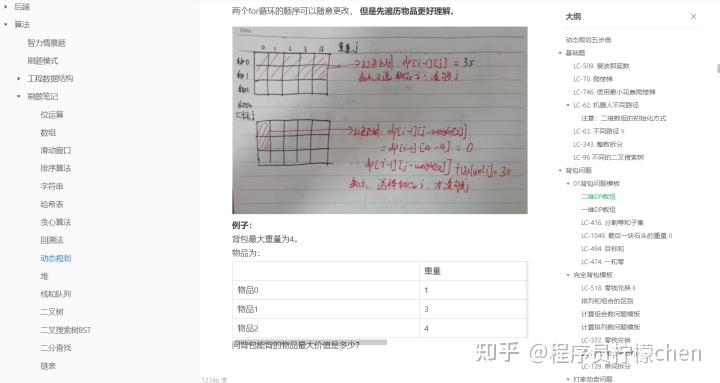 后端
算法
智力情景题
刷题模式
工程数据结构
刷题笔记
位运算
数组
滑动窗口
排序算法
字符串
哈希表
贪心算法
回溯法
动态规划
堆
栈和队列
二叉树
二叉搜索树BST
二分查找
链表
两个for循环的顺序可以随意更改，但是先遍历物品更好理解。
0 1 2 3 4 重量 j
dp[i-1][j] = 35
dp[i-1][j-weight[i]]
= dp[i-1][4-4] = 0
∴ dp[i-1][j-weight[i]] + value[i] = 30
例子：
背包最大重量为4。
物品为：
重量
物品0 1
物品1 3
物品2 4
问背包能背的物品最大价值是多少？
12346 字
大纲
动态规划五步曲
基础题
LC-509. 斐波那契数
LC-70. 爬楼梯
LC-746. 使用最小花费爬楼梯
LC-62. 机器人不同路径
注意：二维数组的初始化方式
LC-63. 不同路径 II
LC-343. 整数拆分
LC-96 不同的二叉搜索树
背包问题
01背包问题模板
二维DP数组
一维DP数组
LC-416. 分割等和子集
LC-1049. 最后一块石头的重量 II
LC-494. 目标和
LC-474. 一和零
完全背包模板
LC-518. 零钱兑换 II
排列和组合的区别
计算组合数问题模板
计算排列数问题模板
LC-322. 零钱兑换
LC-139. 单词拆分
打家劫舍问题
知乎 @程序员柠檬chen